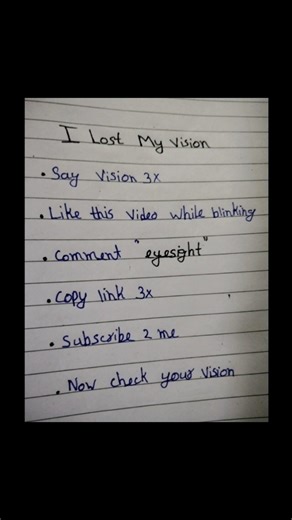 I Lost My Vision
• Say Vision 3x
• Like this Video while blinking
• Comment "eyesight"
• Copy link 3x
• Subscribe 2 me
• Now check your Vision